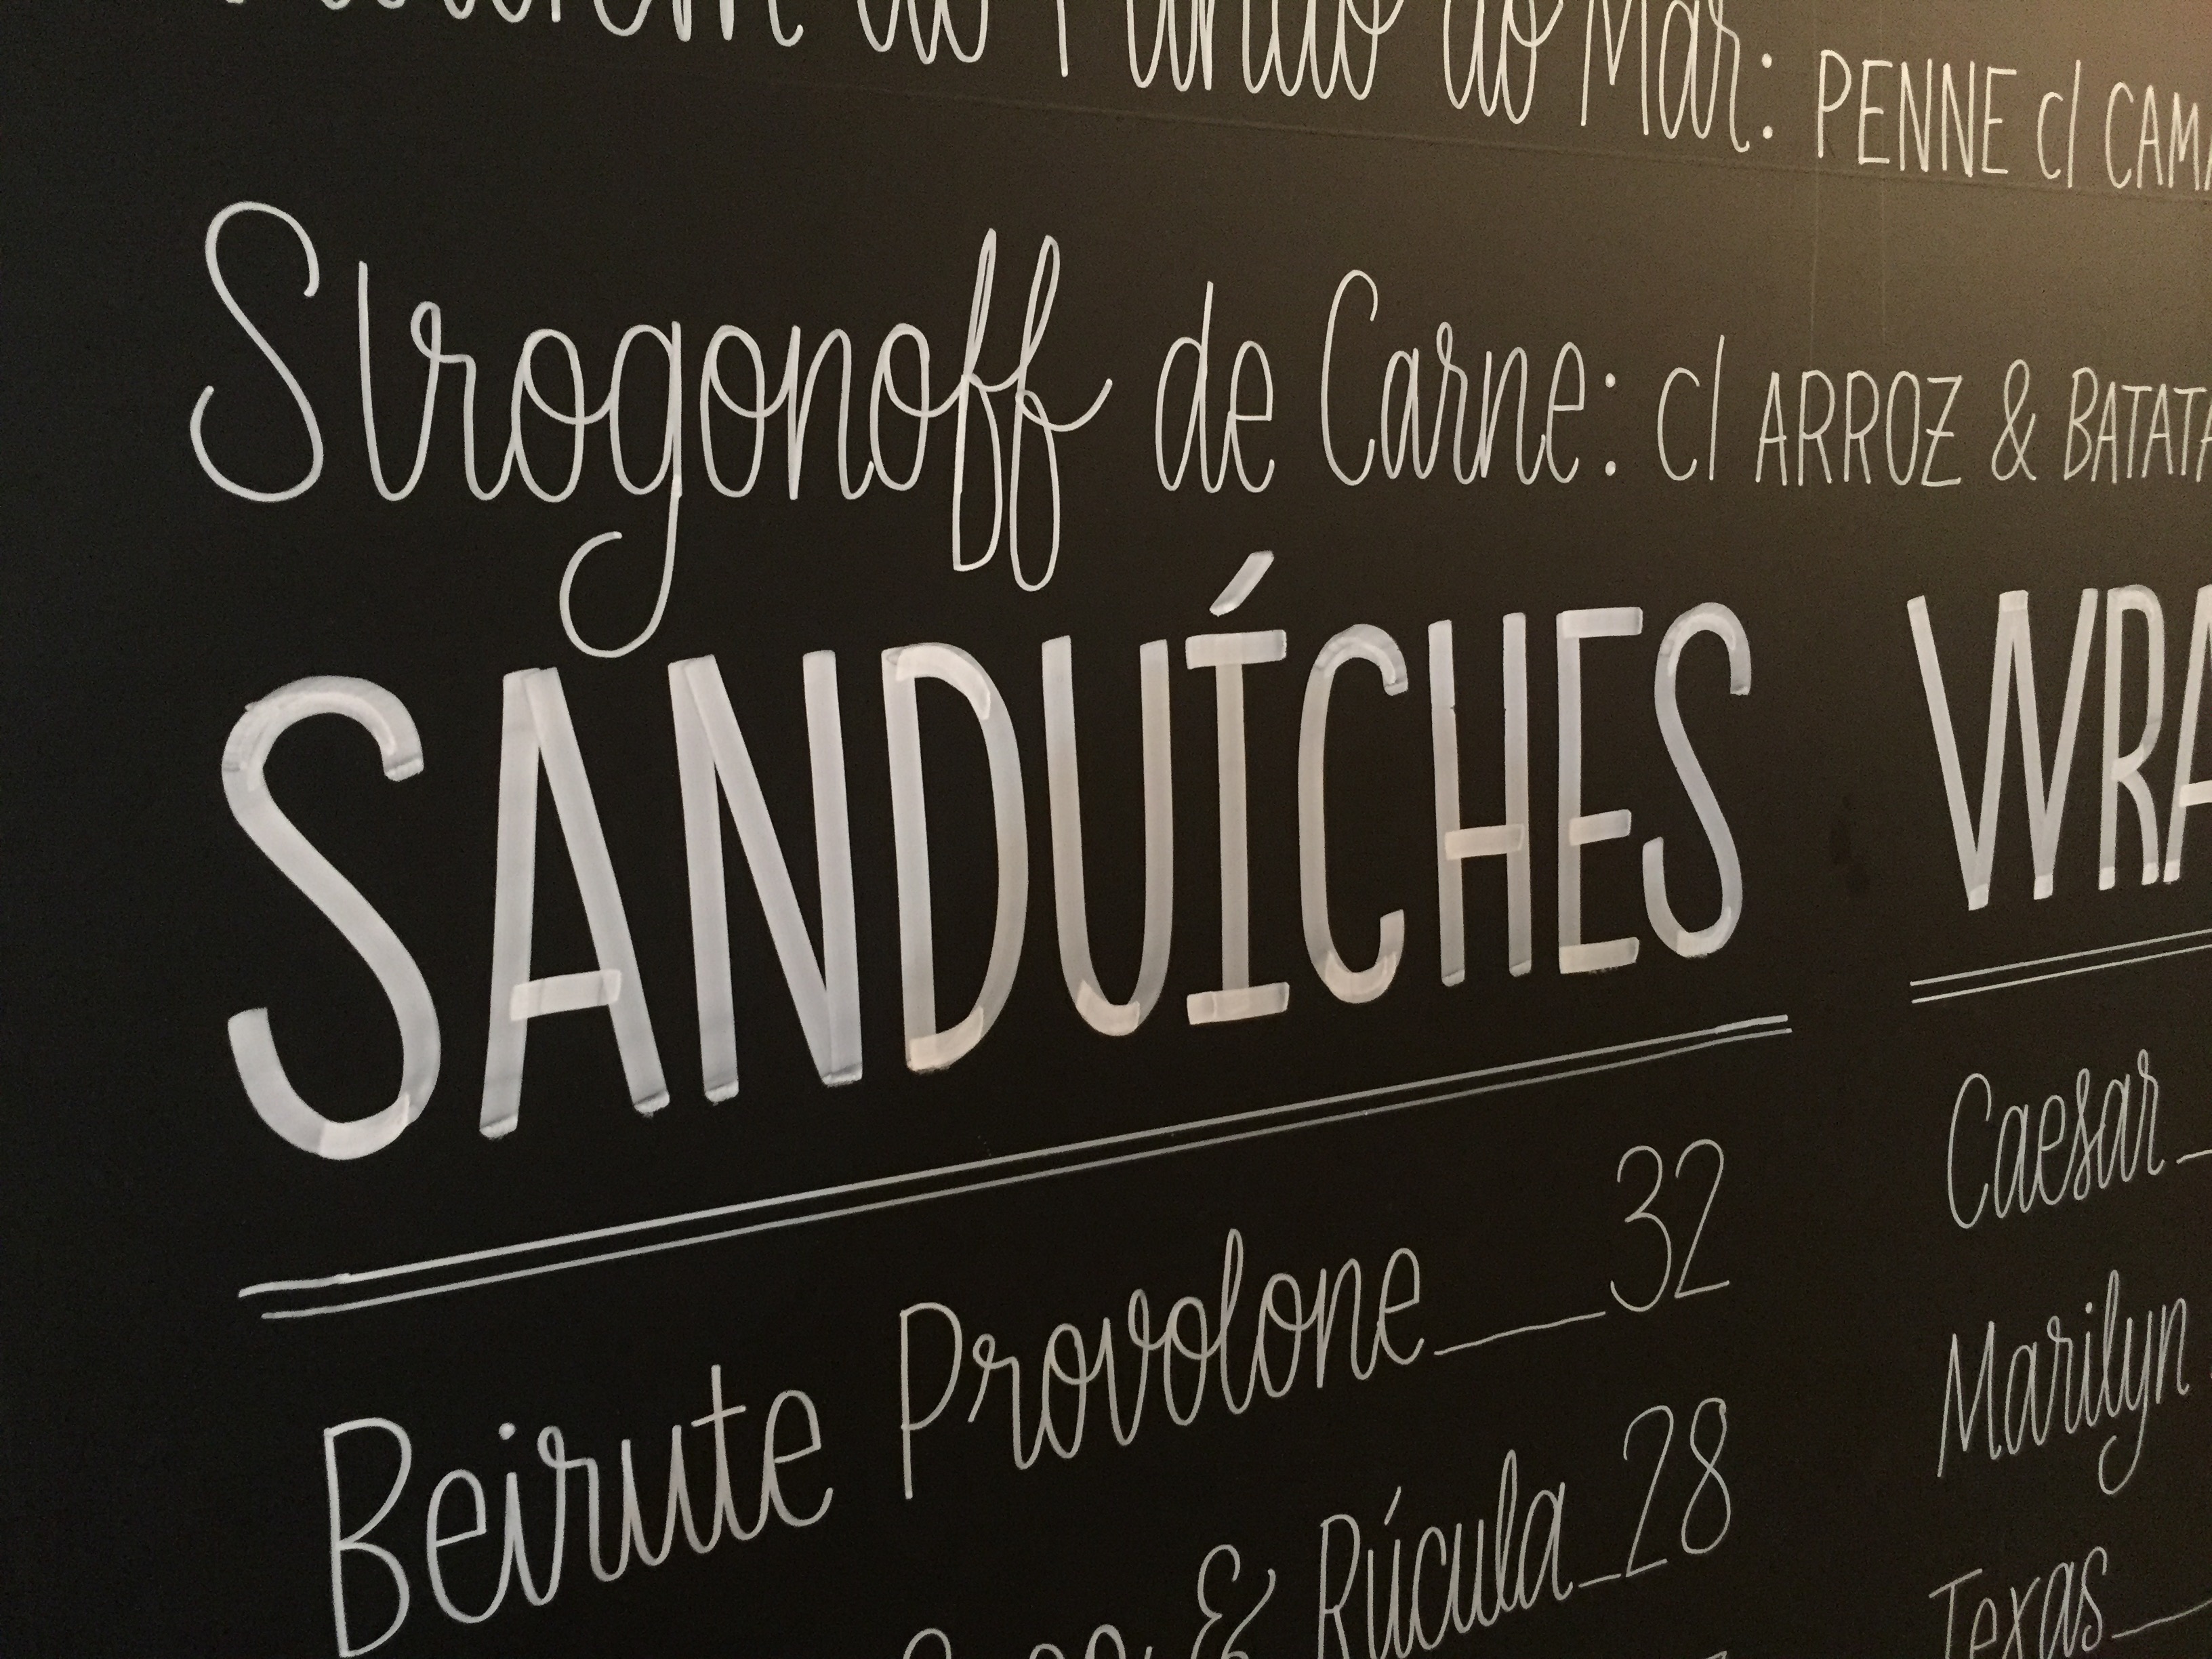 do Mar: PENNE c/
Strogonoff de Carne: c/ ARROZ & BATATA
SANDUÍCHES
Beirute Provolone 32
& Rúcula 28
Caesar
Marilyn
Texas